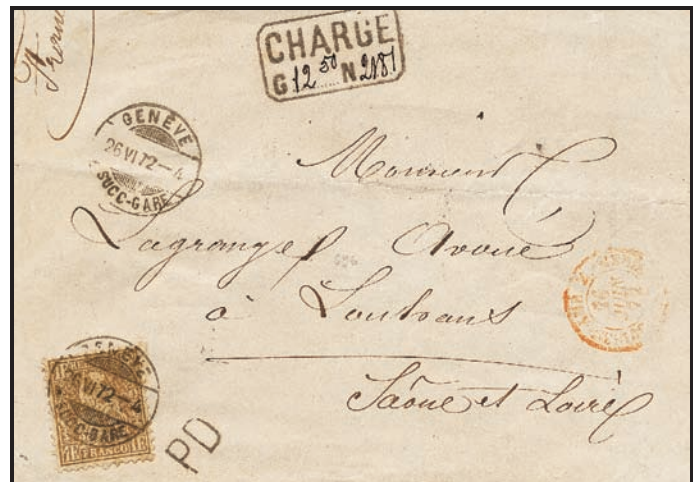 CHARGE
G 12 50 N 2181
GENÈVE
26 VI 72 – 4
SUCC-GARE
Monsieur
Lagrange Avoué
à Louhans
Saône et Loire
26 VI 72 – 4
SUCC-GARE
FRANCO
PD
JUIN